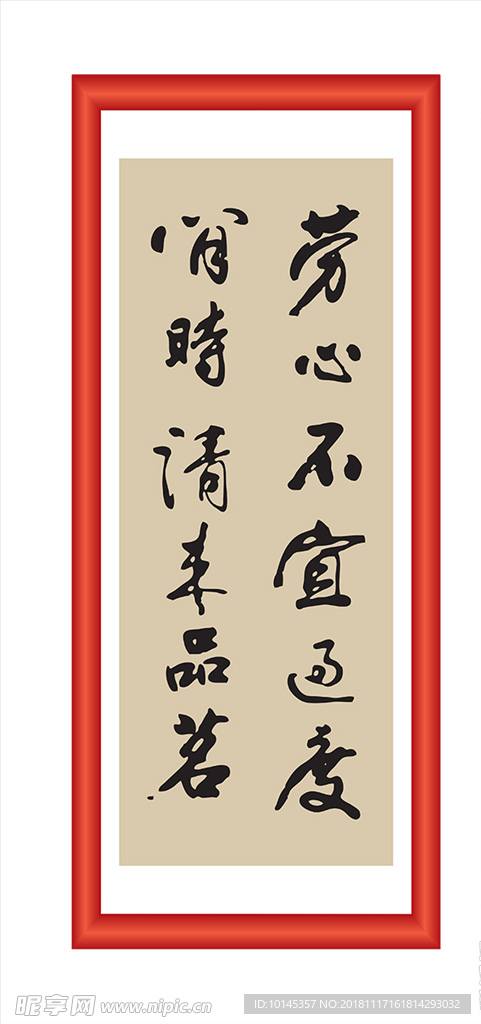 劳心不宜过度
閒時請来品茗
昵享网 www.nipic.cn
ID:10145357 NO:20181117161814293032